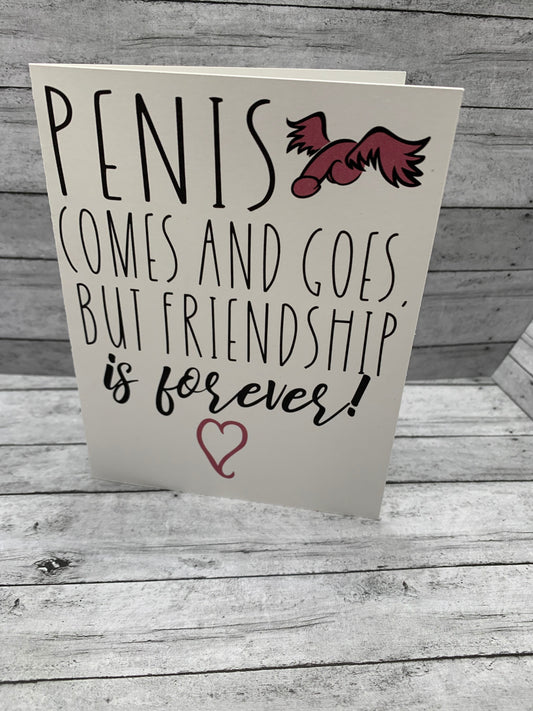 PENIS
COMES AND GOES,
BUT FRIENDSHIP
is forever!